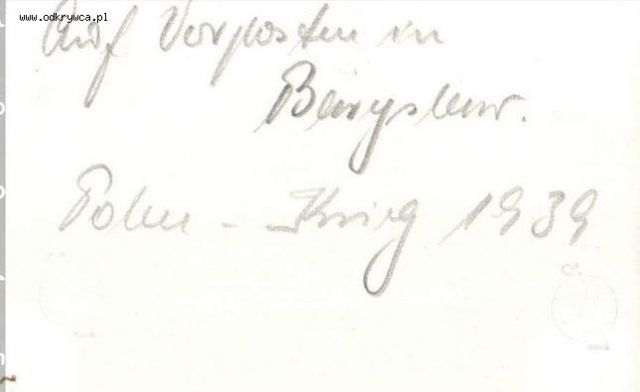 www.odkrywca.pl
Auf Vorposten in
Polen - Krieg 1939